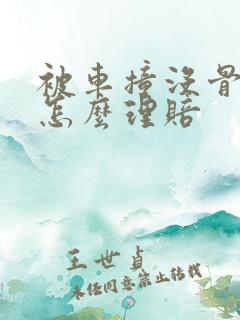 被車撞沒骨
怎麼理賠
王世貞
未經同意禁止轉載